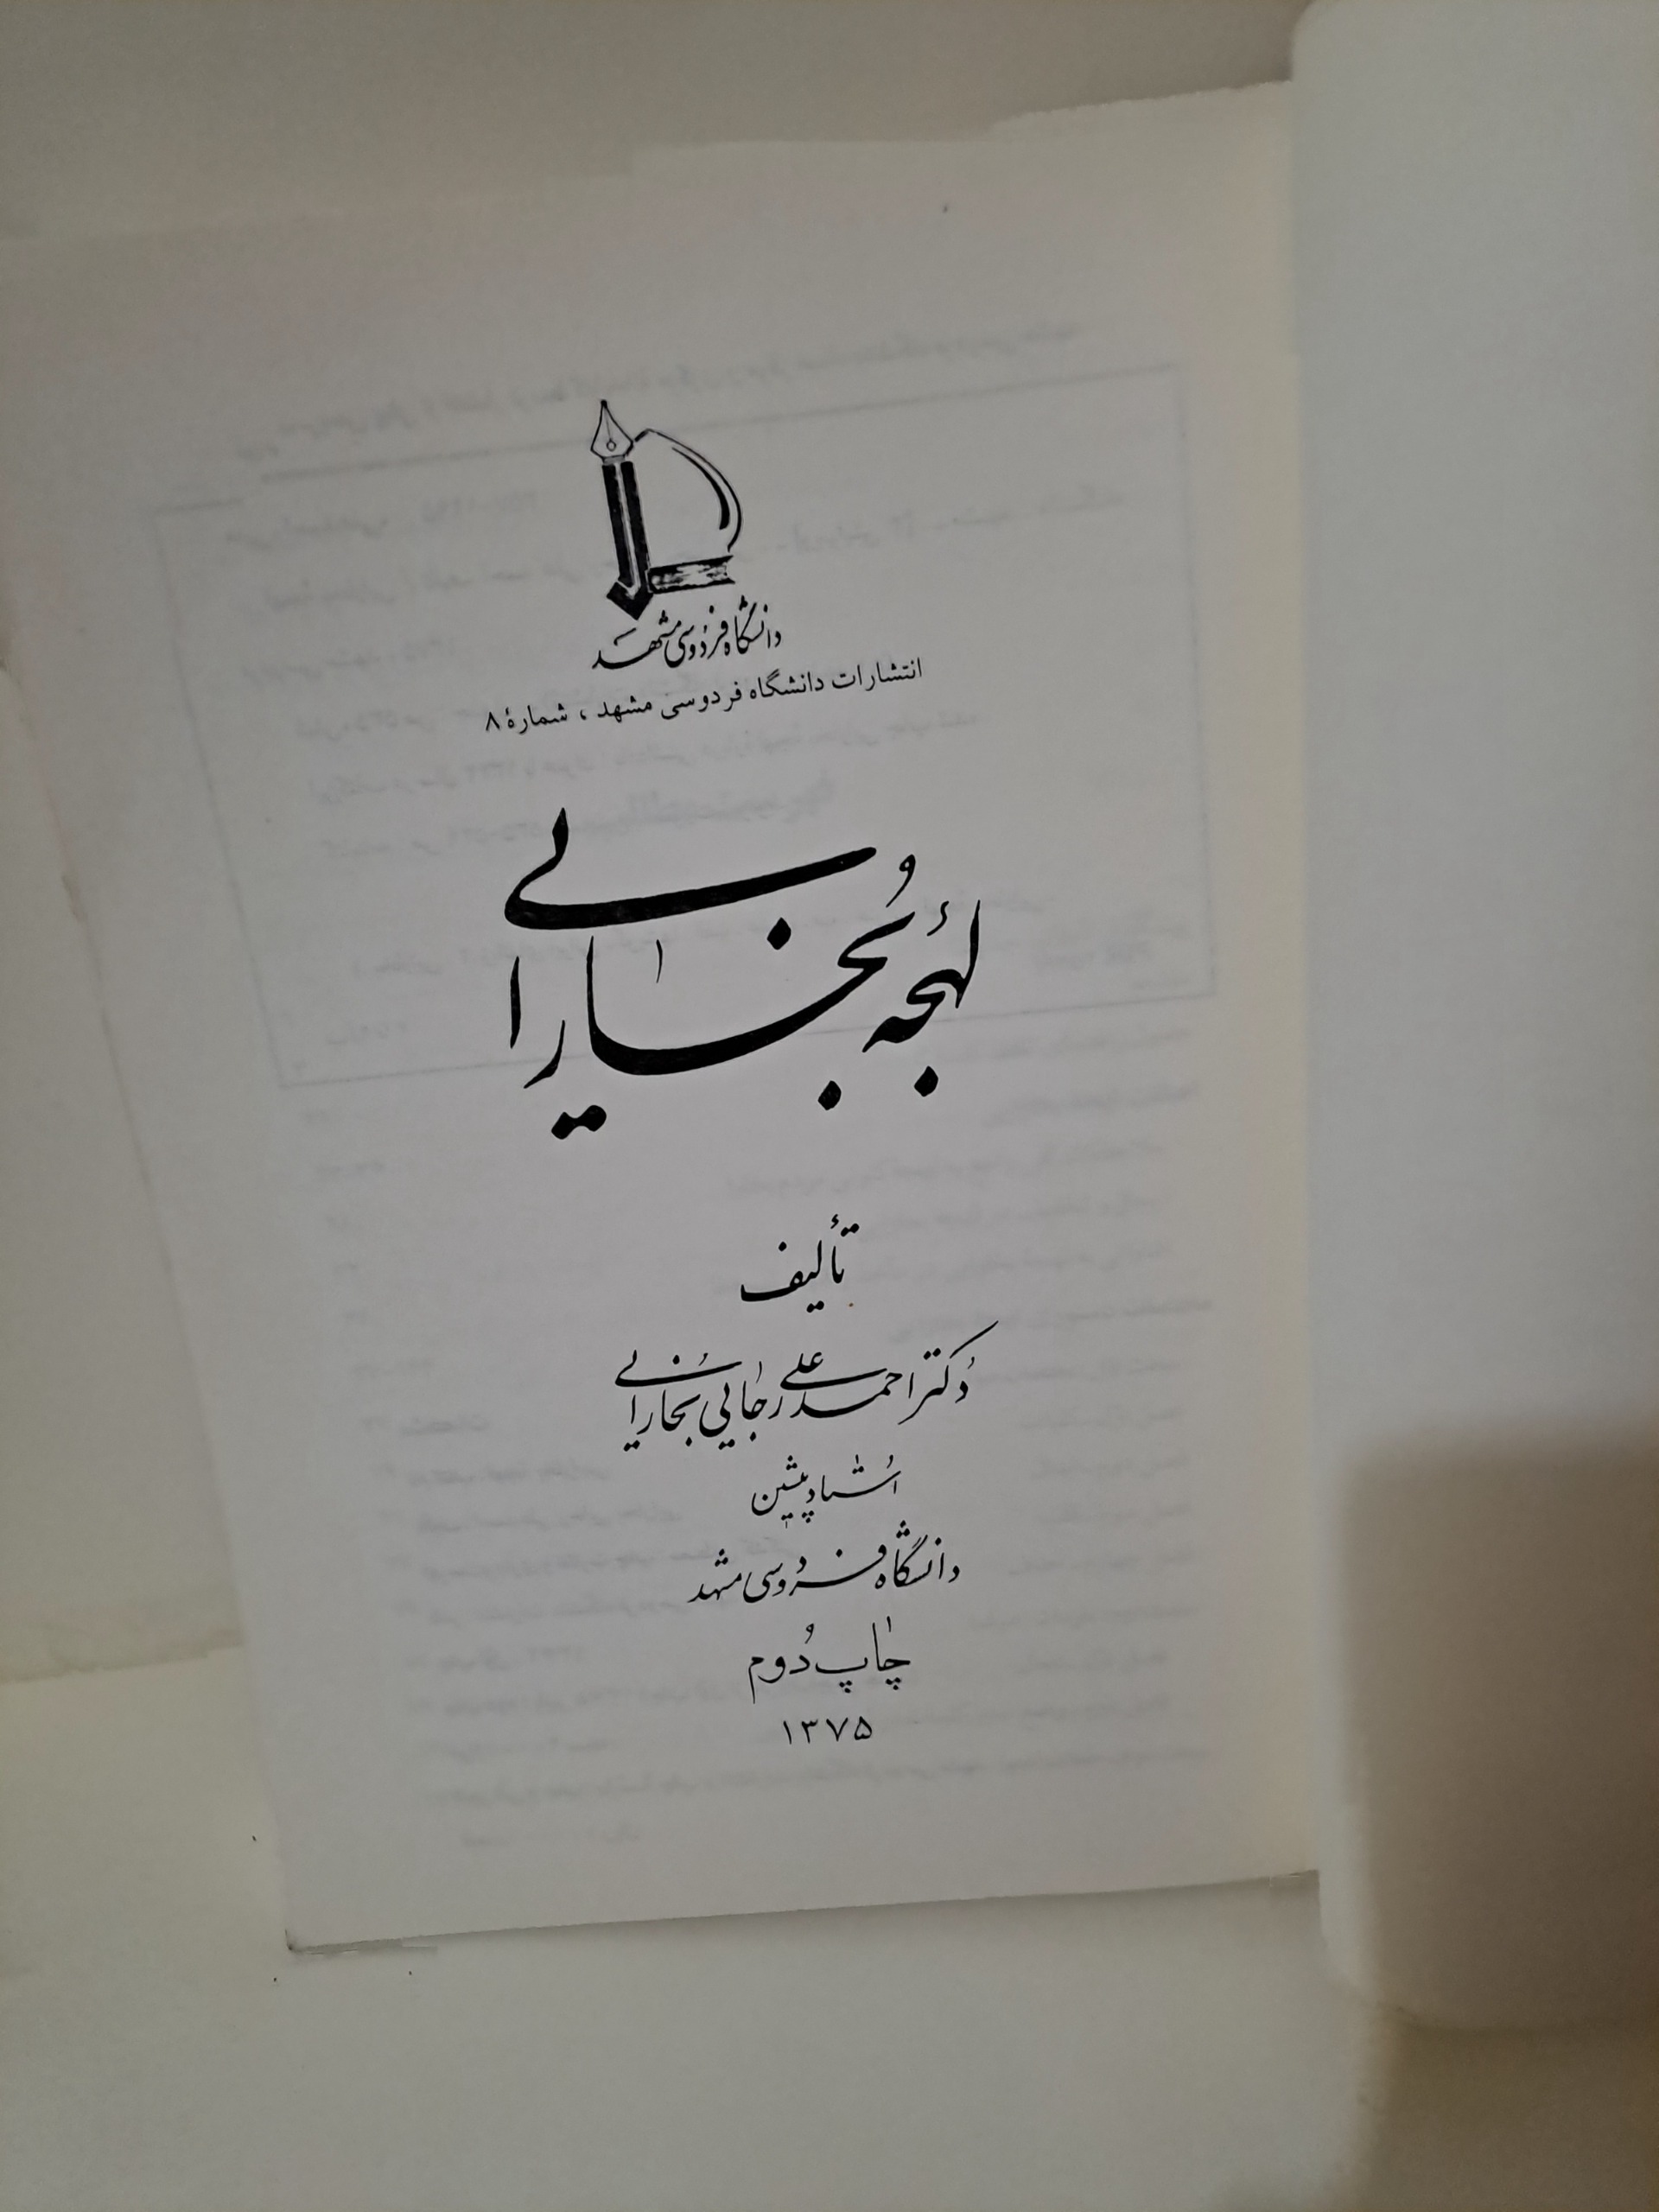 دانشگاه فردوسی مشهد
انتشارات دانشگاه فردوسی مشهد ، شمارهٔ ۸
لهجهٔ بُخارایی
تألیف
دُکتر احمد علی رجایی بُخارایی
اُستاد پیشین
دانشگاه فردوسی مشهد
چاپ دُوم
۱۳۷۵